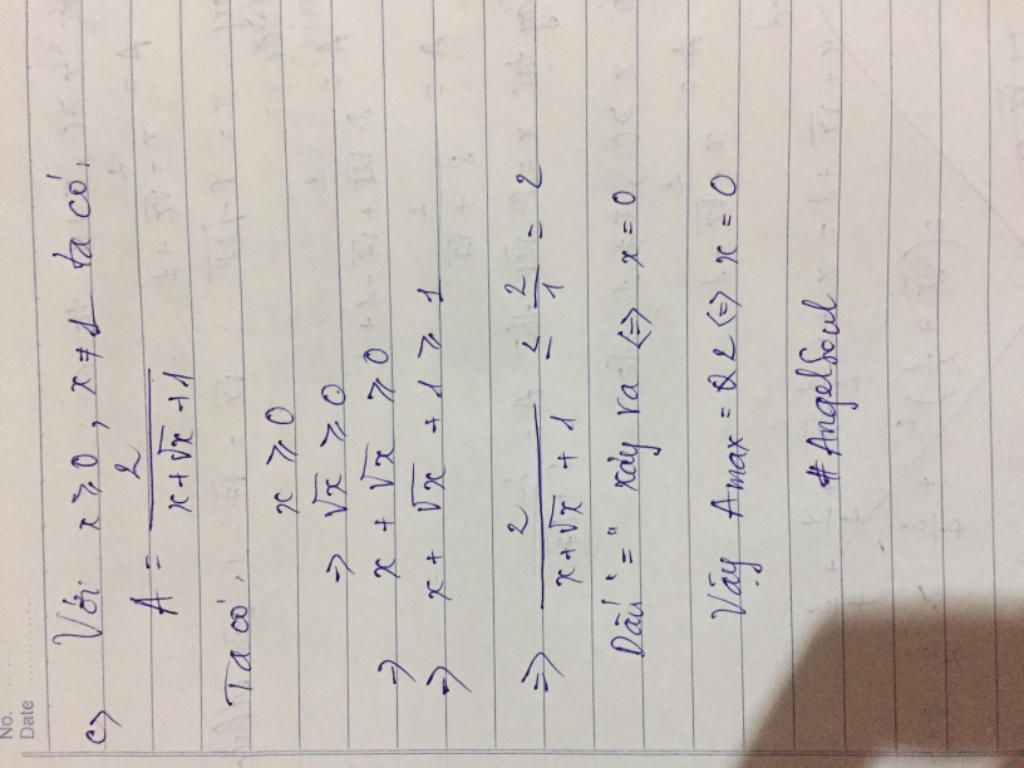 No.
Date
c) Với x ≥ 0, x ≠ 1 ta có,
A = 2 / (x + √x + 1)
Ta có,
x ≥ 0
⇒ √x ≥ 0
⇒ x + √x ≥ 0
⇒ x + √x + 1 ≥ 1
⇒ 2 / (x + √x + 1) ≤ 2/1 = 2
Dấu "=" xảy ra <=> x = 0
Vậy Amax = 2 <=> x = 0
# AngelSoul